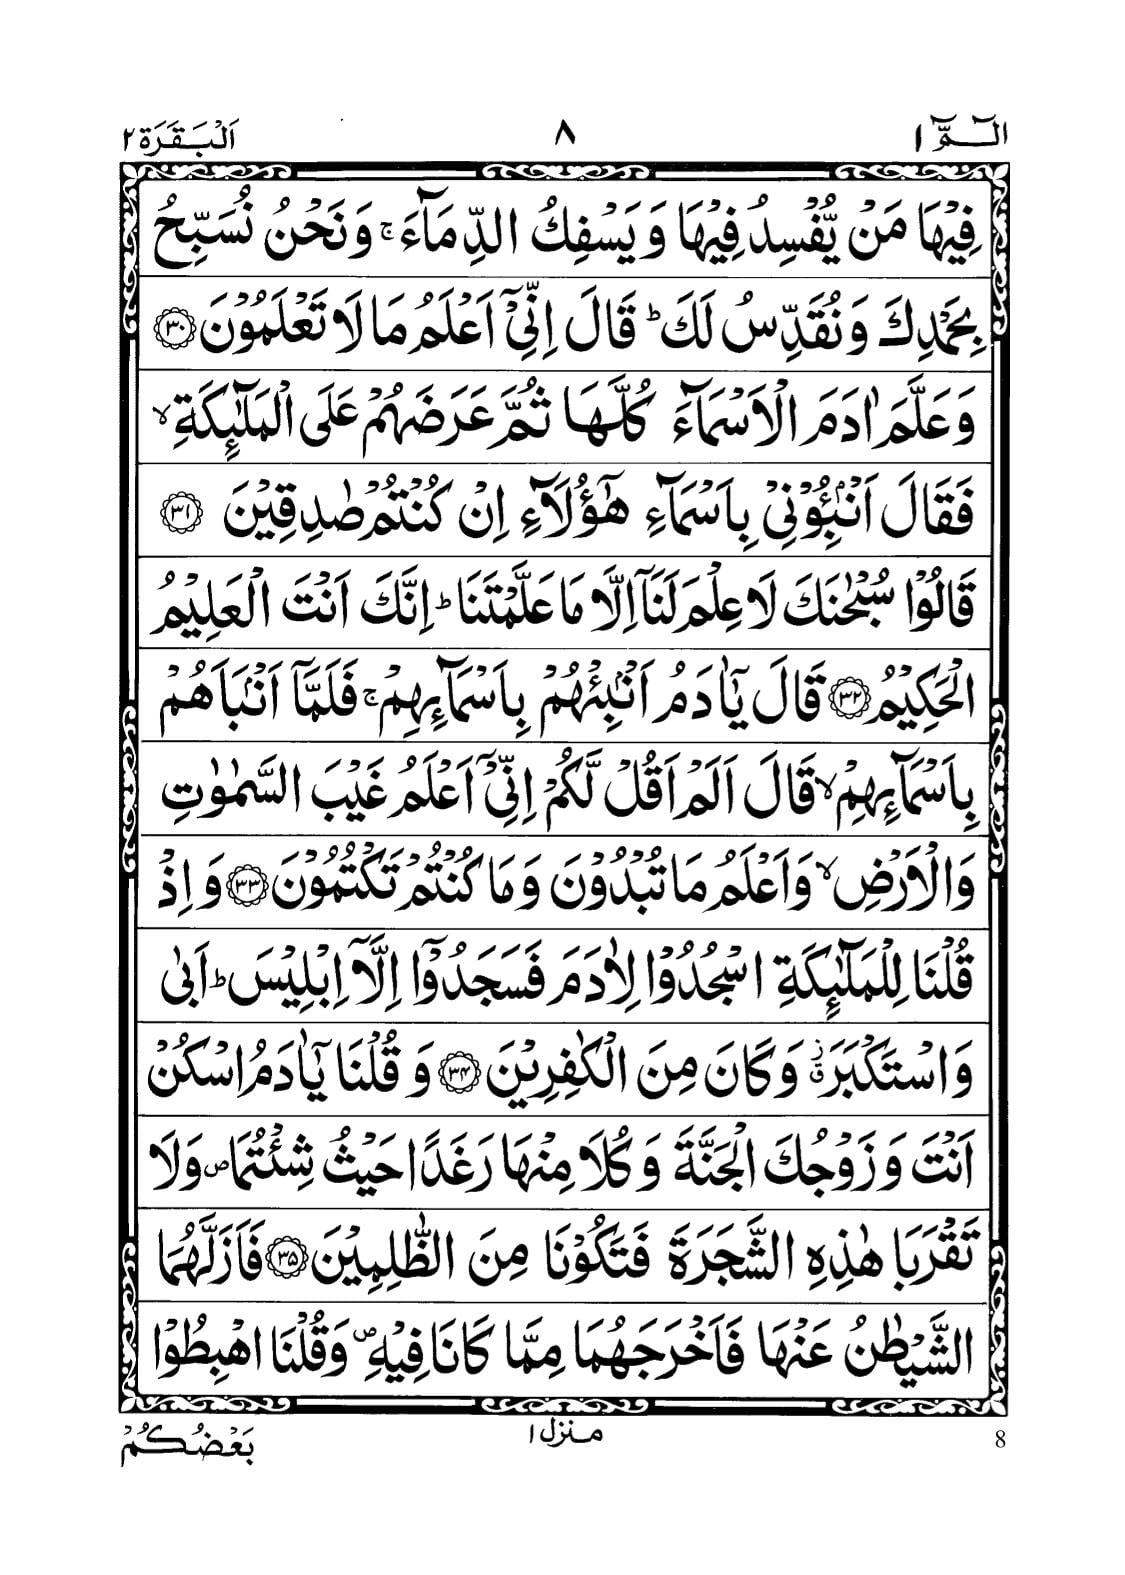 الٓمّٓ ۱ ۸ اَلْبَقَرَة ۲
فِيْهَا مَنْ يُّفْسِدُ فِيْهَا وَيَسْفِكُ الدِّمَآءَ ۚ وَنَحْنُ نُسَبِّحُ
بِحَمْدِكَ وَنُقَدِّسُ لَكَ ؕ قَالَ اِنِّيْۤ اَعْلَمُ مَا لَا تَعْلَمُوْنَ ﴿۳۰﴾
وَعَلَّمَ اٰدَمَ الْاَسْمَآءَ كُلَّهَا ثُمَّ عَرَضَهُمْ عَلَى الْمَلٰٓئِكَةِ ۙ
فَقَالَ اَنْۢبِـُٔوْنِيْ بِاَسْمَآءِ هٰۤؤُلَآءِ اِنْ كُنْتُمْ صٰدِقِيْنَ ﴿۳۱﴾
قَالُوْا سُبْحٰنَكَ لَا عِلْمَ لَنَاۤ اِلَّا مَا عَلَّمْتَنَا ؕ اِنَّكَ اَنْتَ الْعَلِيْمُ
الْحَكِيْمُ ﴿۳۲﴾ قَالَ يٰۤاٰدَمُ اَنْۢبِئْهُمْ بِاَسْمَآئِهِمْ ۚ فَلَمَّاۤ اَنْۢبَاَهُمْ
بِاَسْمَآئِهِمْ ۙ قَالَ اَلَمْ اَقُلْ لَّكُمْ اِنِّيْۤ اَعْلَمُ غَيْبَ السَّمٰوٰتِ
وَالْاَرْضِ ۙ وَاَعْلَمُ مَا تُبْدُوْنَ وَمَا كُنْتُمْ تَكْتُمُوْنَ ﴿۳۳﴾ وَاِذْ
قُلْنَا لِلْمَلٰٓئِكَةِ اسْجُدُوْا لِاٰدَمَ فَسَجَدُوْۤا اِلَّاۤ اِبْلِيْسَ ؕ اَبٰى
وَاسْتَكْبَرَ ۗ٘ وَكَانَ مِنَ الْكٰفِرِيْنَ ﴿۳۴﴾ وَقُلْنَا يٰۤاٰدَمُ اسْكُنْ
اَنْتَ وَزَوْجُكَ الْجَنَّةَ وَكُلَا مِنْهَا رَغَدًا حَيْثُ شِئْتُمَا ۪ وَلَا
تَقْرَبَا هٰذِهِ الشَّجَرَةَ فَتَكُوْنَا مِنَ الظّٰلِمِيْنَ ﴿۳۵﴾ فَاَزَلَّهُمَا
الشَّيْطٰنُ عَنْهَا فَاَخْرَجَهُمَا مِمَّا كَانَا فِيْهِ ۪ وَقُلْنَا اهْبِطُوْا
8 منزل ۱ بَعْضُكُمْ